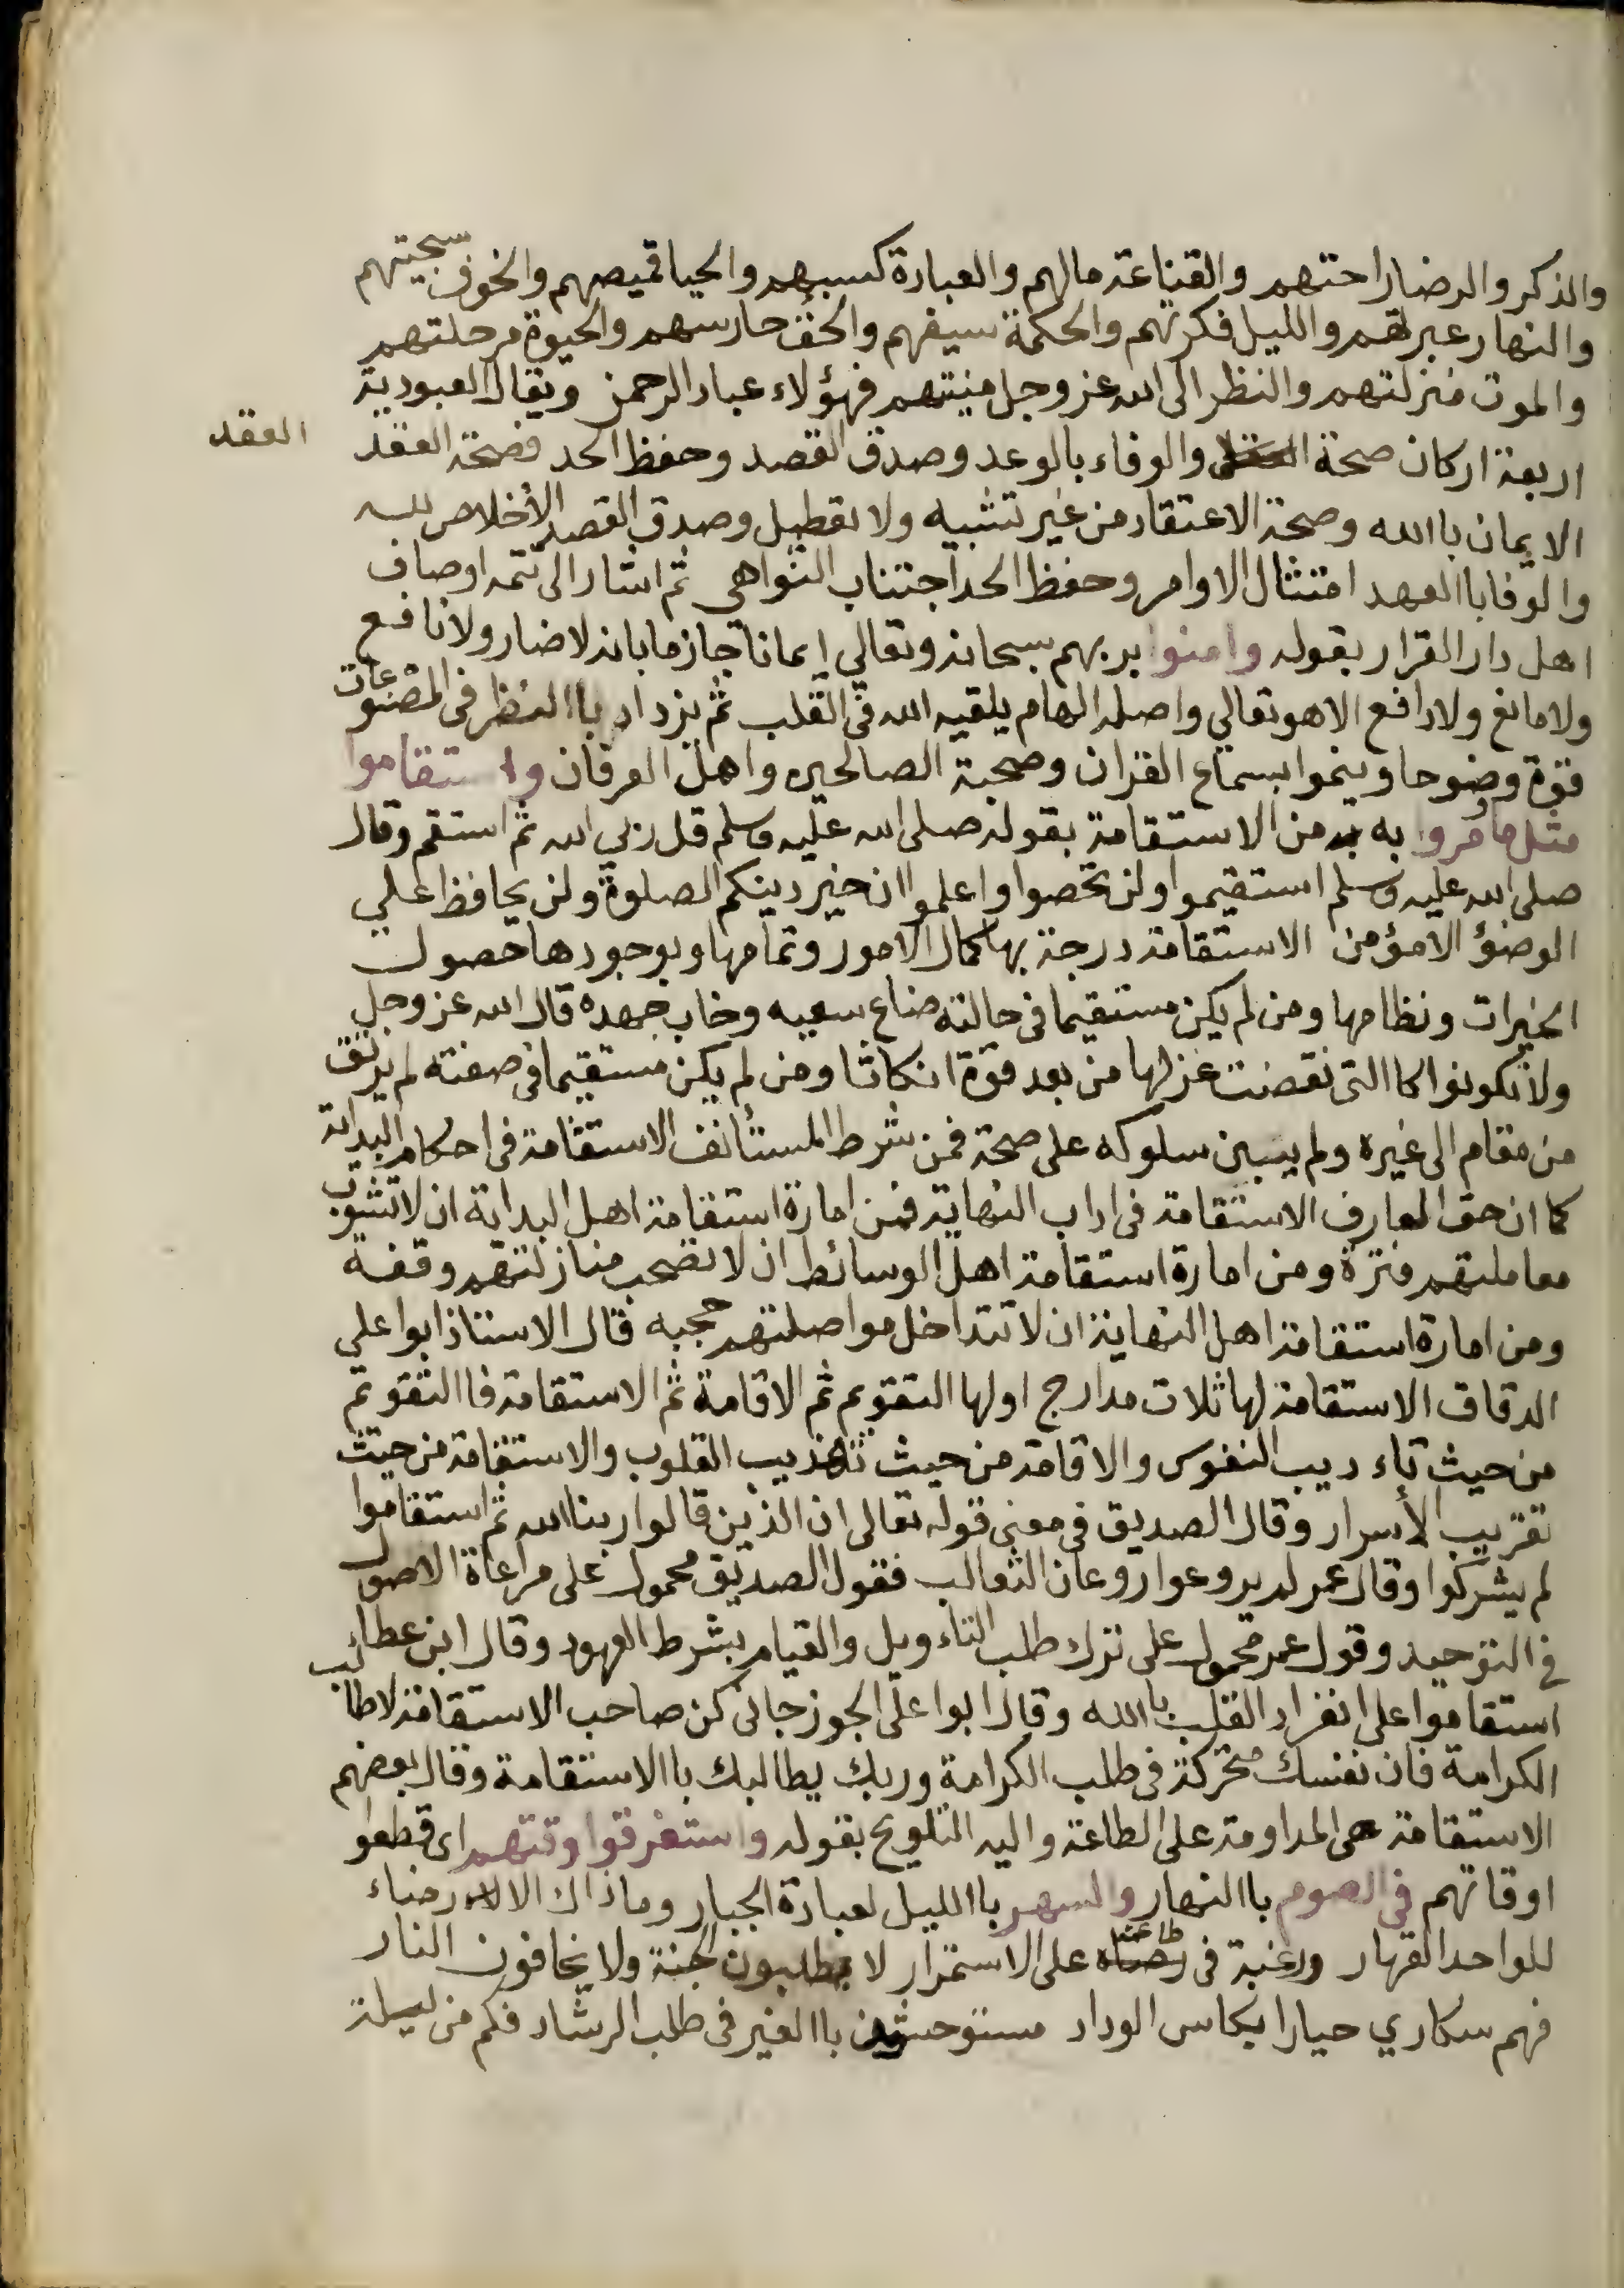 والذكر والرضا راحتهم والقناعة مالهم والعبادة كسبهم والحيا قميصهم والخوف سجيتهم
والنهار عبرتهم والليل فكرتهم والحكمة سيفهم والحق حارسهم والحيوة مرحلتهم
والموت منزلتهم والنظر الى الله عز وجل منيتهم فهؤلاء عباد الرحمن ويقال العبودية
العقد
اربعة اركان صحة والوفاء بالوعد وصدق القصد وحفظ الحد فصحة العقد
الايمان باالله وصحة الاعتقاد من غير تشبيه ولا تعطيل وصدق القصد الأخلاص لله
والوفا باالعهد امتثال الاوامر وحفظ الحد اجتناب النواهي ثم اشار الى تتمه اوصاف
اهل دار القرار بقوله وامنوا بربهم سبحانه وتعالي ايمانا جازما بانه لا ضار ولا نافع
ولا مانع ولا دافع الا هو تعالي واصله الهام يلقيه الله في القلب ثم يزداد باالنظر في المصنوعات
قوة وضوحا وينموا بسماع القران وصحبة الصالحين واهل العرفان واستقاموا
مثل ما أمروا به من الاستقامة بقوله صلى الله عليه وسلم قل ربي الله ثم استقم وقال
صلى الله عليه وسلم استقيموا ولن تحصوا واعلموا ان خير دينكم الصلوة ولن يحافظ علي
الوضؤ الا مؤمن الاستقامة درجة بها كمال الامور وتمامها وبوجودها حصول
الخيرات ونظامها ومن لم يكن مستقيما في حالته ضاع سعيه وخاب جهده قال الله عز وجل
ولا تكونوا كاالتي نقضت غزلها من بعد قوة انكاثا ومن لم يكن مستقيما في صفته لم يرتق
من مقام الى غيره ولم يبين سلوكه على صحة فمن شرط المستأنف الاستقامة في احكام البداية
كما ان حق العارف الاستقامة في اداب النهاية فمن امارة استقامة اهل البداية ان لا تشوب
معاملتهم فترة ومن امارة استقامة اهل الوسائط ان لا تصحب منازلتهم وقفة
ومن امارة استقامة اهل النهاية ان لا تتداخل مواصلتهم حجبه قال الاستاذ ابوا علي
الدقاق الاستقامة لها ثلاث مدارج اولها التقويم ثم الاقامة ثم الاستقامة فاالتقويم
من حيث تاء ديب النفوس والاقامة من حيث تهذيب القلوب والاستقامة من حيث
تقريب الأسرار وقال الصديق في معنى قوله تعالى ان الذين قالوا ربنا الله ثم استقاموا
لم يشركوا وقال عمر لم يروعوا روعان الثعالب فقول الصديق محمول على مراعاة الاصول
في التوحيد وقول عمر محمول على ترك طلب التاء ويل والقيام بشرط العهود وقال ابن عطا
استقاموا على انفراد القلب باالله وقال ابوا على الجوزجاني كن صاحب الاستقامة لا طالب
الكرامة فان نفسك متحركة في طلب الكرامة وربك يطالبك باالاستقامة وقال بعضهم
الاستقامة هي المداومة على الطاعة واليه التلويح بقوله واستغرقوا وقتهم اى قطعوا
اوقاتهم في الصوم باالنهار والسهر باالليل لعبادة الجبار وما ذاك الا رضاء
للواحد القهار ورغبة في طاعته على الاستمرار لا يطلبون جنة ولا يخافون النار
فهم سكاري حيارا بكاس الوداد مستوحشين باالغير في طلب الرشاد فكم من ليلة